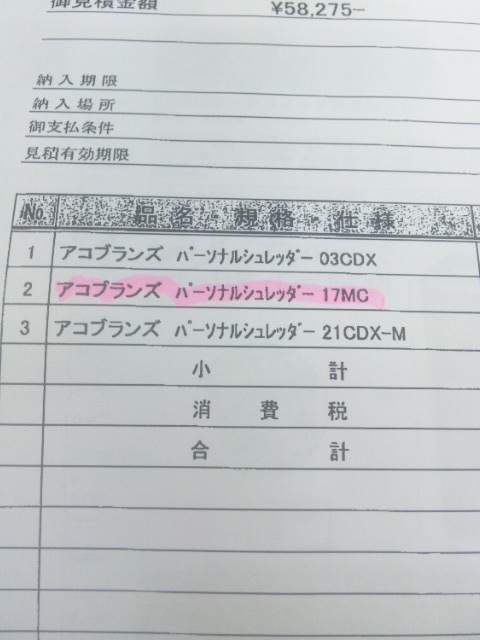 御見積金額 ¥58,275-
納入期限
納入場所
御支払条件
見積有効期限
No. 品名・規格・仕様
1 アコブランズ パーソナルシュレッダー 03CDX
2 アコブランズ パーソナルシュレッダー 17MC
3 アコブランズ パーソナルシュレッダー 21CDX-M
小計
消費税
合計